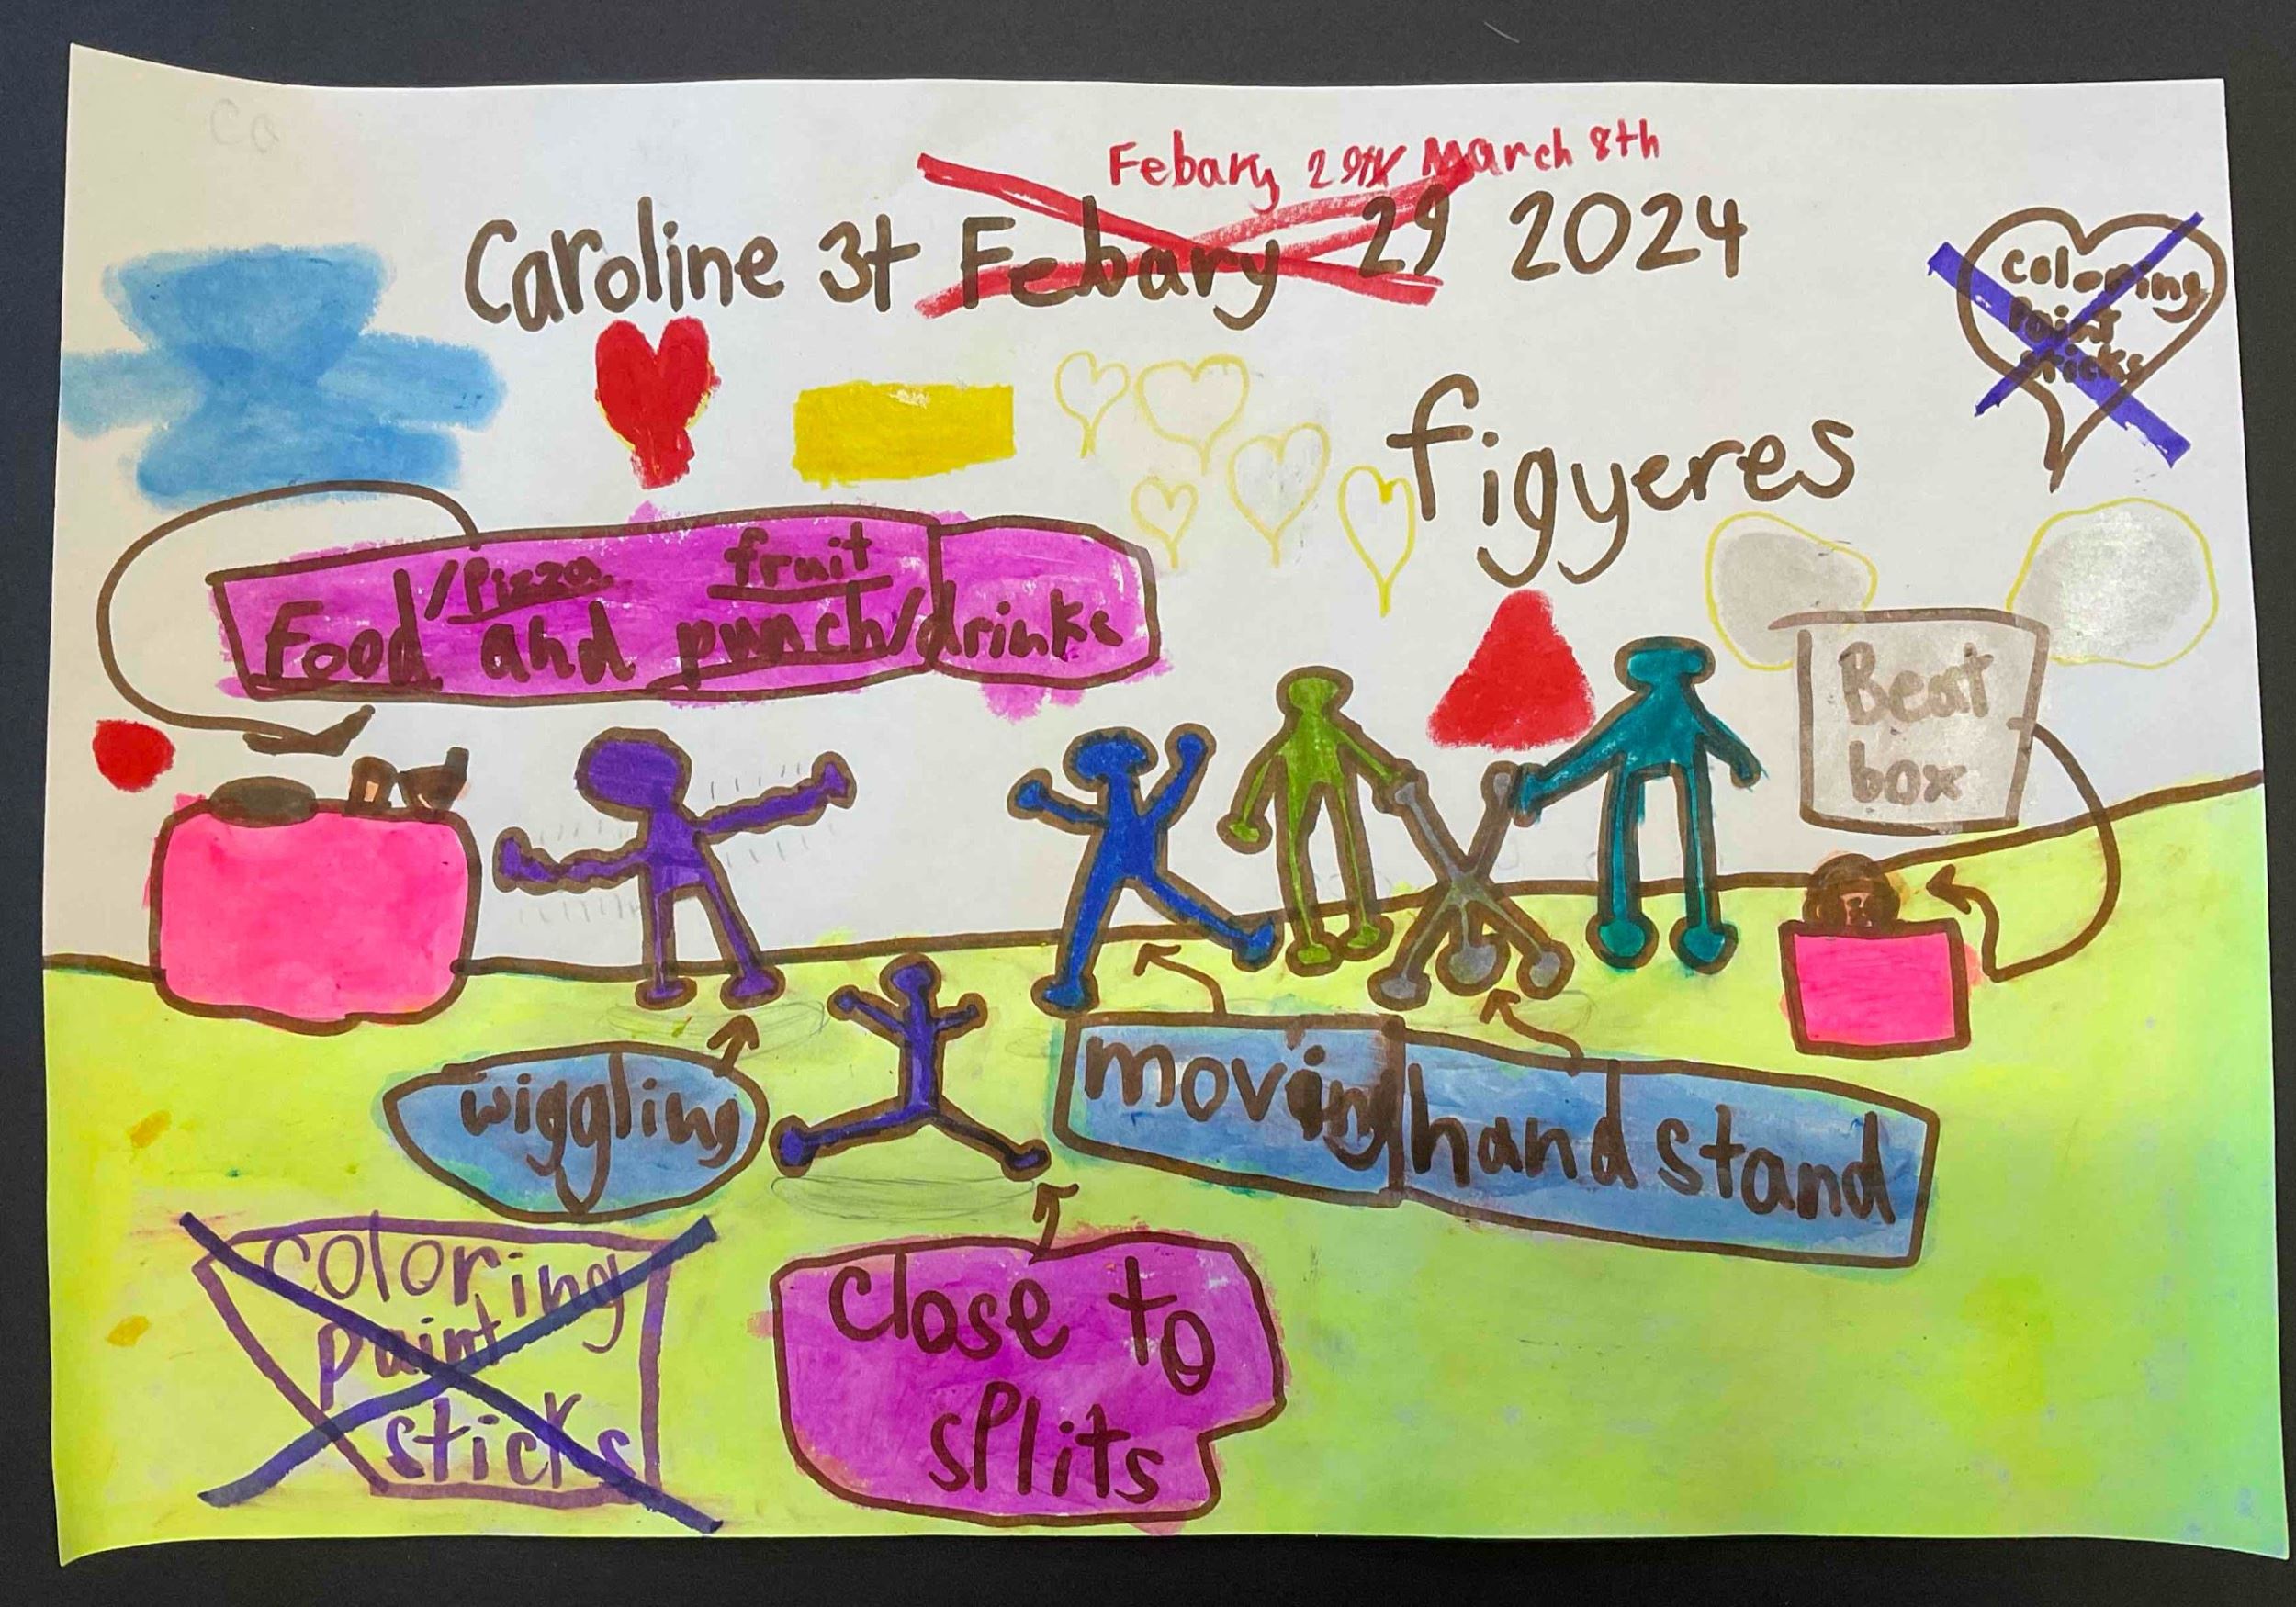 Co
Febary 29th March 8th
Caroline 3t Febary 29 2024
coloring
paint
sticks
figyeres
/Pizza fruit
Food and punch/drinks
Beat
box
wiggling
moving hand stand
coloring
paint
sticks
close to
splits